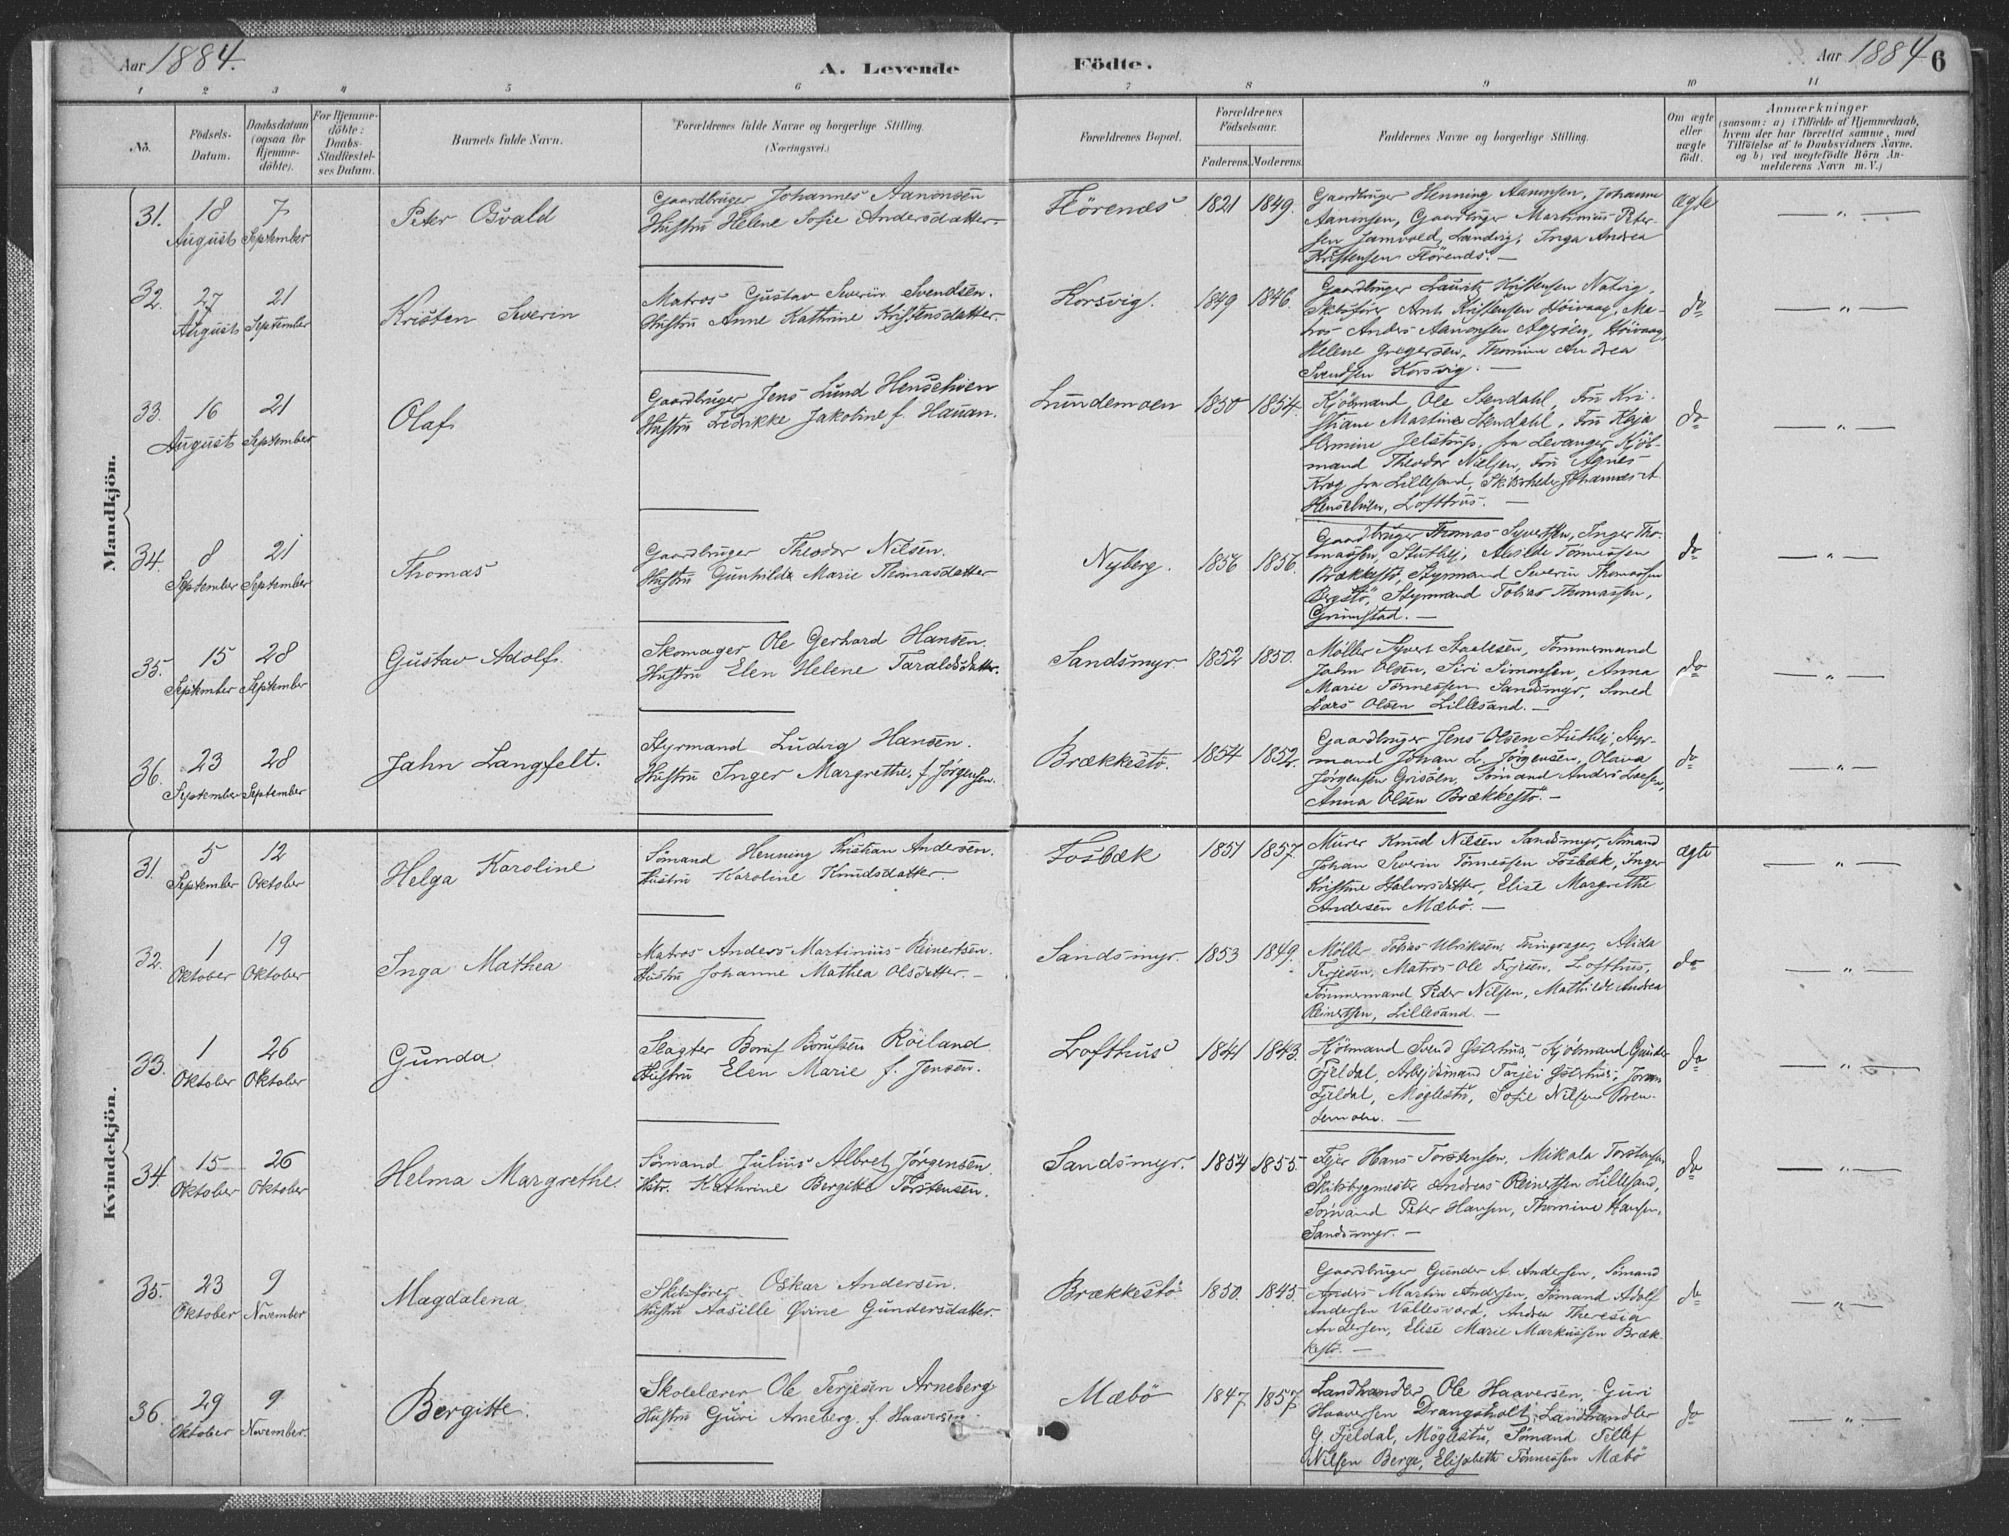 Aar 1884.
A. Levende
Födte.
Aar 1884
6
1 2 3 4 5 6 7 8 9 10 11
No.
Födsels-
Datum.
Daabsdatum
(ogsaa for
Hjemme-
döbte).
For Hjemme-
döbte:
Daabs-
Stadfæstel-
ses Datum.
Barnets fulde Navn.
Forældrenes fulde Navne og borgerlige Stilling.
(Næringsvei.)
Forældrenes Bopæl.
Forældrenes
Födselsaar.
Faderens. Moderens.
Faddernes Navne og borgerlige Stilling.
Om ægte
eller
uægte
født.
Anmærkninger
(saasom: a) i Tilfælde af Hjemmedaab,
hvem der har forrettet samme, med
Tilföielse af to Daabsvidners Navne.
og b) ved uægtefödte Börn An-
melderens Navn m. V.)
Mandkjön.
31.
18
August
7
September
Peter Osvald
Gaardbruger Johannes Aanonsen
Hustru Helene Sofie Andersdatter
Flörenæs
1821
1849.
Gaardbruger Henning Aanonsen, Johanne
Aanonsen, Gaardbruger Martinius Peter-
sen Jamvold, Landvig, Inga Andrea
Kristensen Flörenæs. —
Ægte
— „ —
32.
27
August
21
September
Kristen Severin
Matros Gustav Severin Svendsen.
Hustru Anne Kathrine Kristensdatter.
Korsvig.
1849
1846.
Gaardbruger Lauritz Kristensen Natvig,
Skibsfører Arnt Kristensen Höivaag, Ma-
tros Anders Aanonsen Ageröen, Höivaag,
Helene Gregersen, Thomine Andrea
Svendsen Korsvig. —
do
— „ —
33.
16
August
21
September
Olaf
Gaardbruger Jens Lund Henschien
Hustru Fredrikke Jakobine f. Hauan.
Lundemoen
1850
1854.
Kjöbmand Ole Stendahl, Fru Kri-
stiane Martine Stendahl, Fru Kaja
Hermine Jelstrup, fra Levanger, Kjöb-
mand Theodor Nielsen, Fru Agnes
Krog fra Lillesand, Skibsrheder Johannes A
Henschien, Lofthus. —
do
— „ —
34.
8
September
21
September
Thomas
Gaardbruger Theodor Nilsen.
Hustru Gunhilde Marie Thomasdatter
Nyberg.
1856
1856.
Gaardbruger Thomas Syvertsen, Inger Tho-
massen, Stuthej, Alvilde Tönnessen
Brækkestö, Styrmand Severin Thomassen
Bergstö, Styrmand Tobias Thomassen,
Grimstad. —
do
— „ —
35.
15
September
28
September
Gustav Adolf.
Skomager Ole Gerhard Hansen.
Hustru Elen Helene Taraldsdatter.
Sandsmyr
1852
1850.
Møller Syvert Staalesen, Tömmermand
Jahn Olsen, Siri Simonsen, Anna
Marie Tönnessen Sandsmyr, Smed
Lars Olsen Lillesand. —
do
— „ —
36.
23
September
28
September
Jahn Langfelt.
Styrmand Ludvig Hansen.
Hustru Inger Margrethe, f. Jørgensen.
Brækkestö.
1854
1852.
Gaardbruger Jens Olsen Stuthej, Styr-
mand Johan L. Jörgensen, Olava
Jörgensen Grisöen, Sömand Anders Larsen,
Anna Olsen Brækkestö. —
do
— „ —
Kvindekjön.
31.
5
September
12
Oktober
Helga Karoline
Sömand Henning Kristian Andersen.
Hustru Karoline Knudsdatter.
Fosbæk
1851
1857.
Murer Knud Nilsen Sandsmyr, Sömand
Johan Severin Tönnessen Fosbæk, Inger
Kristine Halvorsdatter, Elise Margrethe
Andersen Mæbö. —
Ægte
— „ —
32.
1
Oktober
19
Oktober
Inga Mathea
Matros Anders Martinius Reinertsen.
Hustru Johanne Mathea Olsdatter. —
Sandsmyr.
1853
1849.
Møller Tobias Ulriksen, Tingsager, Alida
Terjesen, Matros Ole Terjesen, Lofthus,
Tömmermand Peder Nilsen, Mathilde Andrea
Reinertsen, Lillesand. —
do
— „ —
33.
1
Oktober
26
Oktober
Gunda
Slagter Boruf Borufsen Röiland.
Hustru Elen Marie f. Jensen.
Lofthus
1841
1843.
Kjöbmand Svend Østerhus, Kjöbmand Gunder
Fjeldal, Arbejdsmand Tarjei Østerhus, Joran
Fjeldal, Möglestu, Sofie Nilsen Bren-
demoen. —
do
— „ —
34.
15
Oktober
26
Oktober
Helma Margrethe
Sömand Julius Albret Jörgensen.
Hstr. Kathrine Bergitte Torstensen.
Sandsmyr.
1854
1855.
Fejer Hans Torstensen, Mikala Torstensen
Skibsbygmester Andreas Reinertsen Lillesand,
Sömand Peter Hansen, Thomine Hansen,
Sandsmyr. —
do
— „ —
35.
23
Oktober
9
November
Magdalena
Skibsfører Oskar Andersen.
Hustru Aasille Gundersdatter.
Brækkestö
1850.
1845.
Gaardbruger Gunder A. Andersen, Sömand
Anders Martin Andersen, Sömand Adolf
Andersen Vallesværd, Andrea Theresia
Andersen, Elise Marie Markussen Bræk-
kestö. —
do
— „ —
36.
29
Oktober
9
November.
Bergitte.
Skolelærer Ole Terjesen Arneberg
Hustru Guri Arneberg, f. Haaversen
Mæbö
1847
1857.
Landhandler Ole Haaversen, Guri
Haaversen Drangsholt, Landhandler
G. Fjeldal, Möglestu, Sömand Tellef
Nilsen Berge, Elisabeth Tönnessen Mæbö
do
— „ —